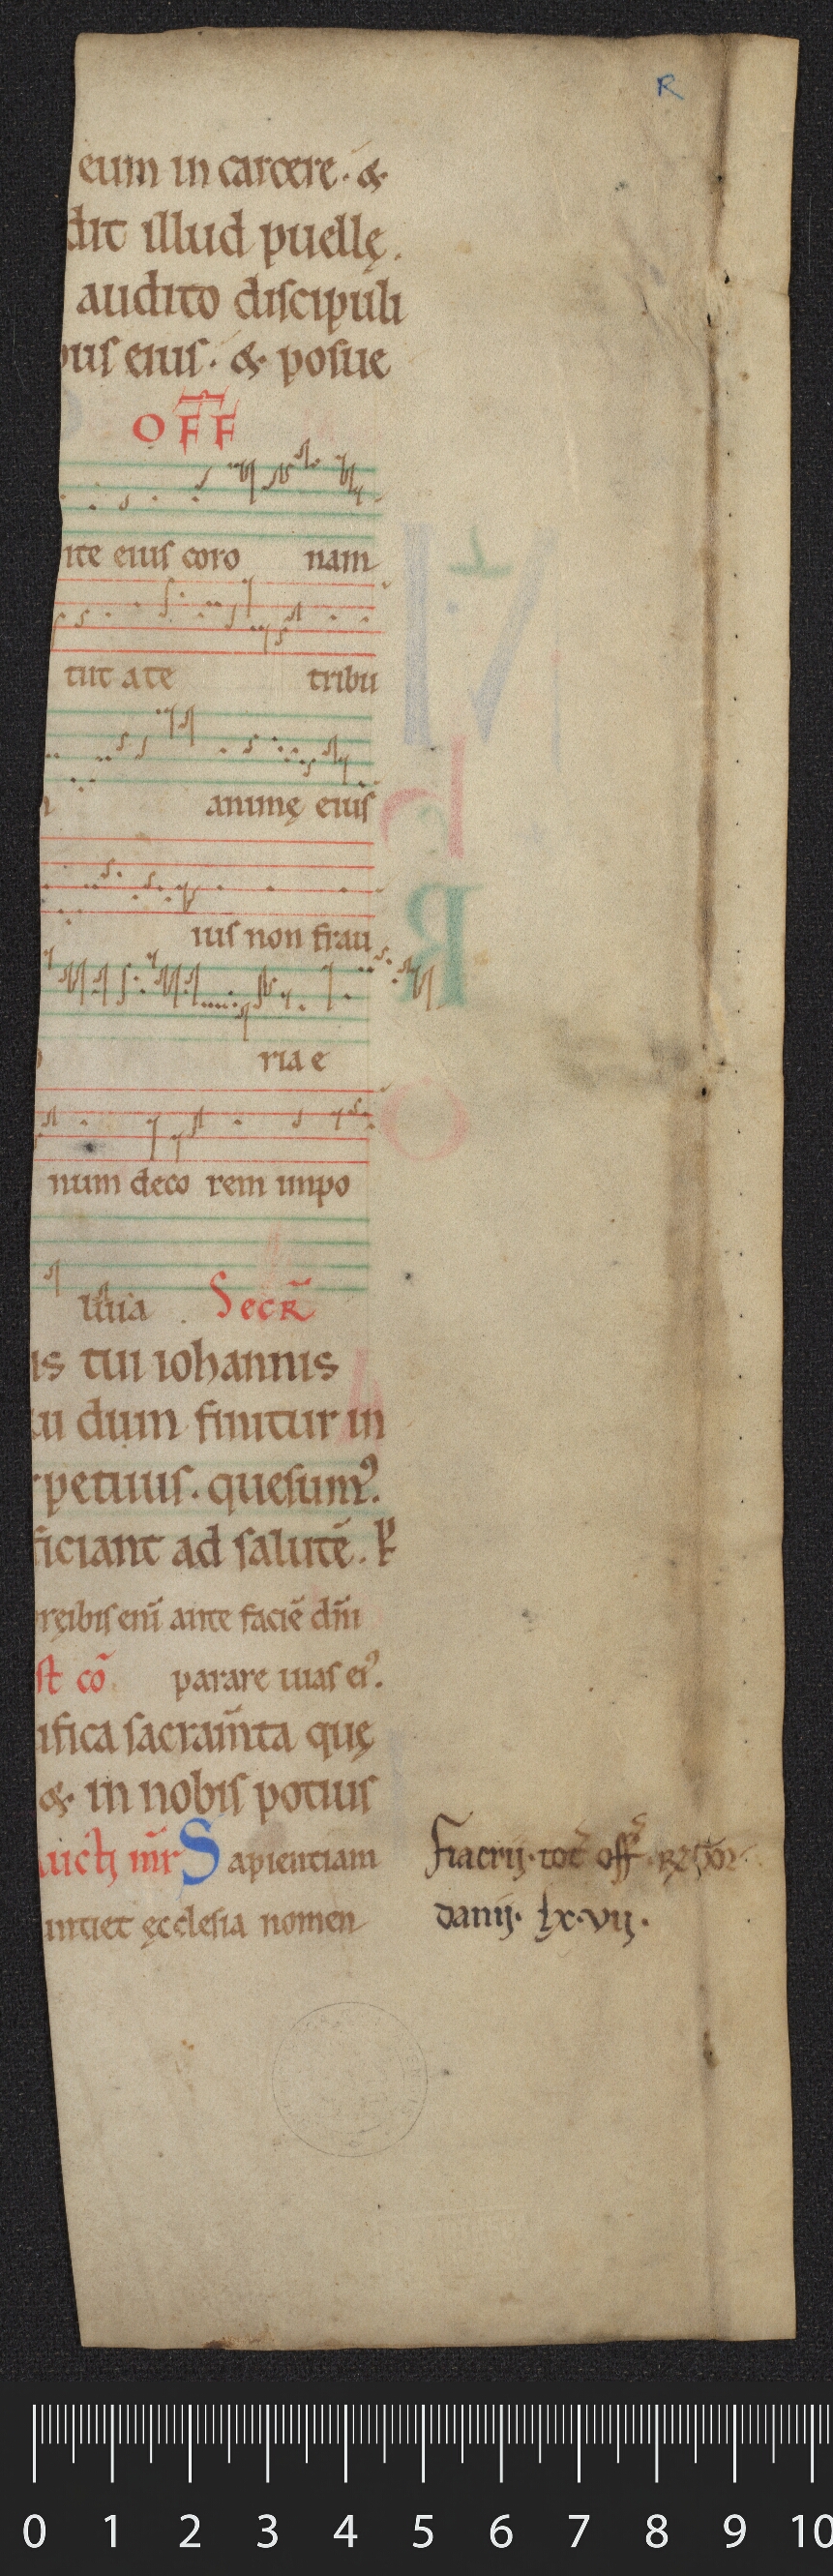 R
eum in carcere. &
dit illud puellę.
audito discipuli
bus eius. & posue
OFF
ite eius coro nam
tut a te tribu
animę eius
ius non frau
ria e
num deco rem inpo
luia. Secr̄
is tui iohannis
tu dum finitur in
rpetuus. quesumꝰ.
ficiant ad salutē.
pręibis eni ante faciē dn̄i
st cō parare uias eiꝰ.
ifica sacram̄ta quę
& in nobis potius
mr̄ Sapientiam
untiet ęcclesia nomen
fiacrij. tot off
danij. lx.vij.
0 1 2 3 4 5 6 7 8 9 10